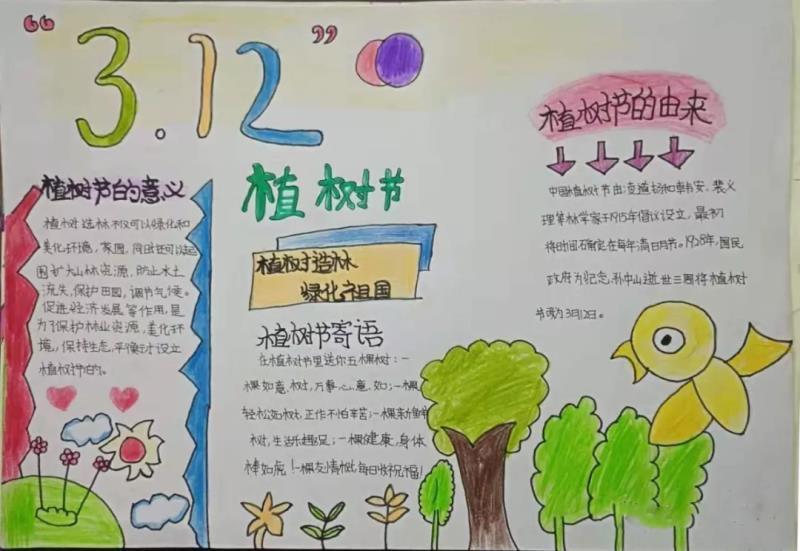 “3.12”
植树节
植树节的意义
植树造林不仅可以绿化和
美化环境，家园，同时还可以
扩大山林资源，防止水土
流失，保护田园，调节气候。
促进经济发展等作用，是
为了保护林业资源，美化环
境，保持生态平衡而设立
植树节的。
植树造林
绿化祖国
植树节寄语
在植树节里送你五棵树：一
棵如意树，万事心意如；一棵
轻松如树，工作不怕辛苦；一棵
树，生活乐趣足；一棵健康，身体
棒如虎！一棵友情树，每日收祝福！
植树节的由来
中国植树节由：凌道扬和韩安、裴义
理等林学家于1915年倡议设立，最初
将时间确定在每年清明节。1928年，国民
政府为纪念孙中山逝世三周年将植树
节改为3月12日。